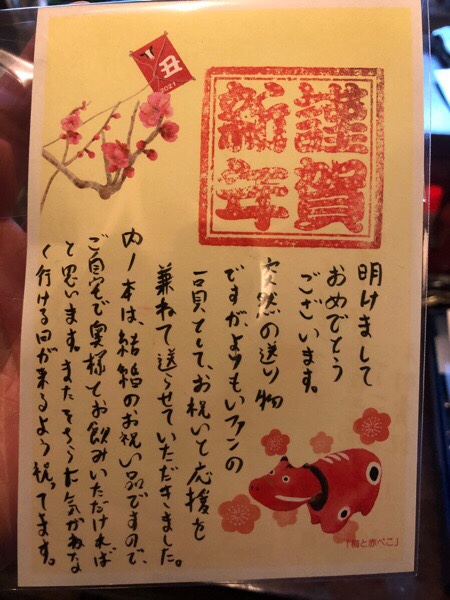 丑
2021
謹賀
新年
明けまして
おめでとう
ございます。
突然の送り物
ですが、よりもいファンの
一員として、お祝いと応援を
兼ねて送らせていただきました。
内1本は、結婚のお祝い品ですので、
ご自宅で奥様とお飲みいただければ
と思います。またそちらに気がねな
く行ける日が来るよう祝ってます。
「梅と赤べこ」